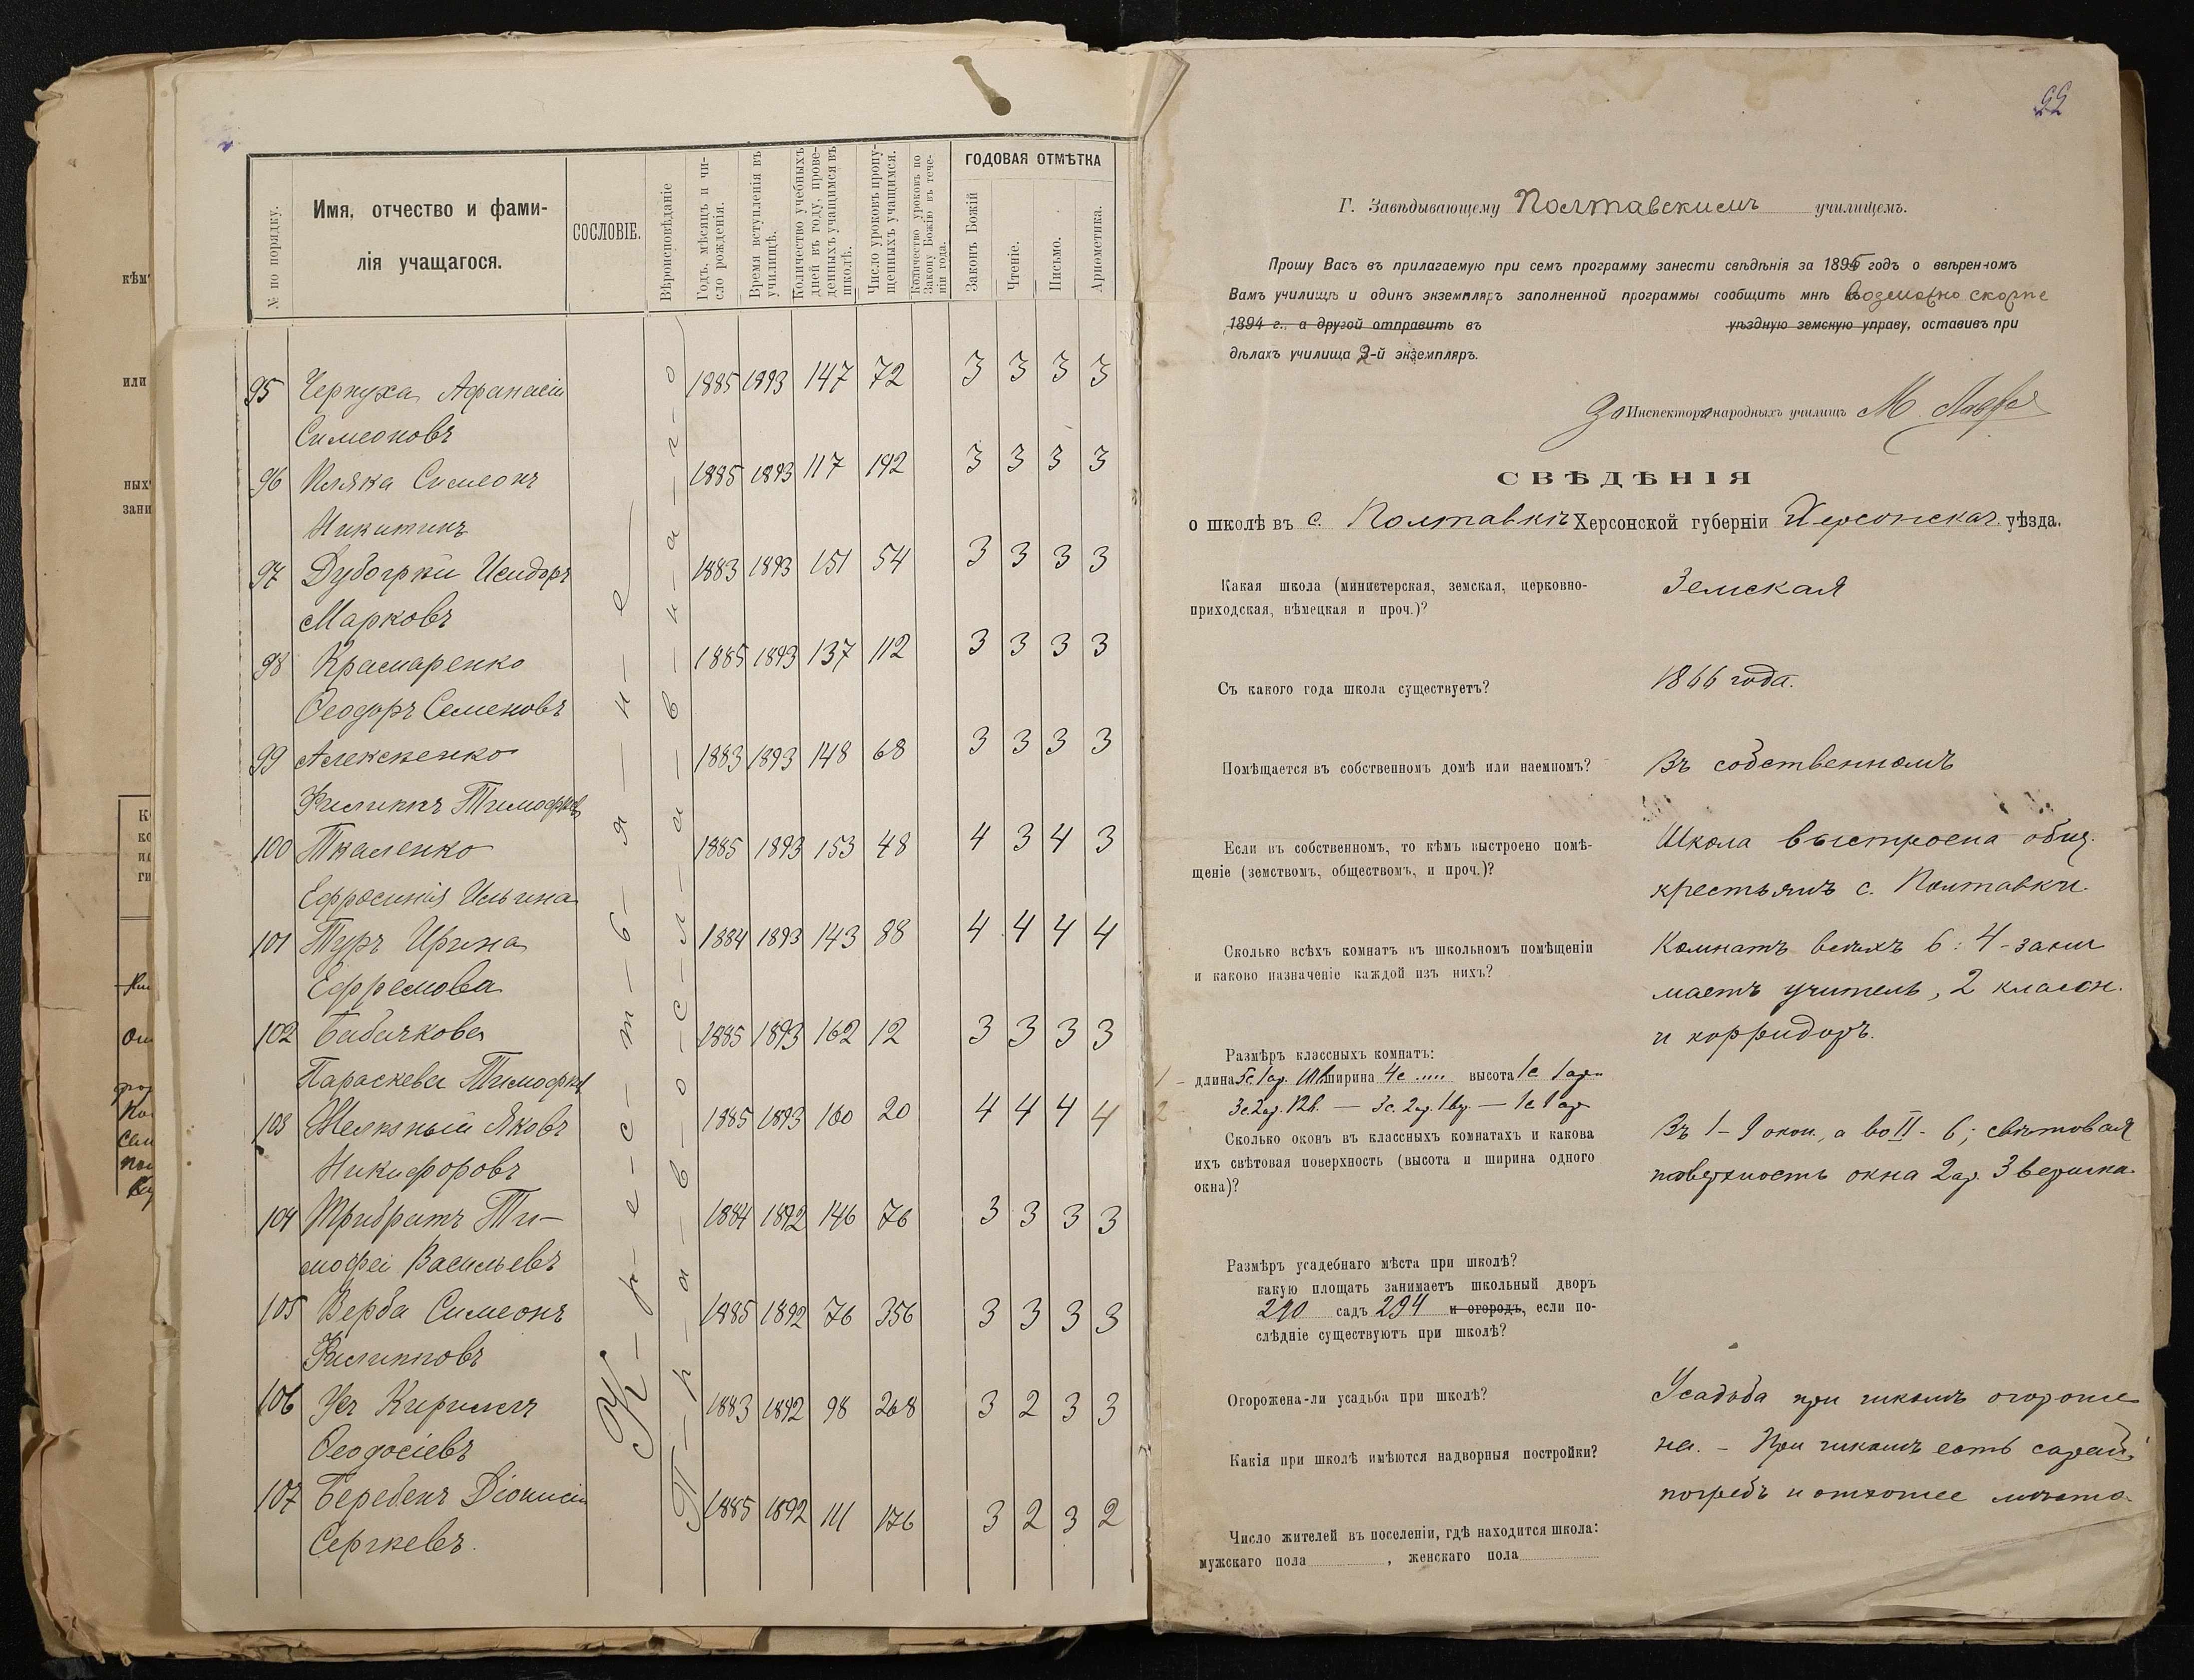 № по порядку.
Имя, отчество и фами-
лія учащагося.
СОСЛОВІЕ.
Вѣроисповѣданіе
Годъ, мѣсяцъ и чи-
сло рожденія.
Время вступленія въ
училище.
Количество учебныхъ
дней въ году, прове-
денныхъ учащимся въ
школѣ.
Число уроковъ пропу-
щенныхъ учащимся.
Количество уроковъ по
Закону Божію въ тече-
ніи года.
ГОДОВАЯ ОТМѢТКА
Законъ Божій
Чтеніе.
Письмо.
Ариѳметика.
К-р-е-с-т-ь-я-н-е
П-р-а-в-о-с-л-а-в-н-а-г-о
95 Черкуха Афанасій 1885 1893 147 72 3 3 3 3
Симеоновъ
96 Кляка Симеонъ 1885 1893 117 192 3 3 3 3
Никитинъ
97 Исидоръ 1883 1893 151 54 3 3 3 3
Марковъ
98 Крамаренко 1885 1893 137 112 3 3 3 3
Ѳеодоръ Семеновъ
99 Алексѣенко 1883 1893 148 68 3 3 3 3
Филиппъ Тимофѣевъ
100 Ткаленко 1885 1893 153 48 4 3 4 3
Ефросинія Ильина
101 Туръ Ирина 1884 1893 143 88 4 4 4 4
Ефремова
102 Бабачкова 1885 1893 162 12 3 3 3 3
Параскева Тимофѣев
103 Желѣзный Яковъ 1885 1893 160 20 4 4 4 4
Никифоровъ
104 Трибратъ Ти- 1884 1892 146 76 3 3 3 3
мофей Васильевъ
105 Верба Симеонъ 1885 1892 76 356 3 3 3 3
Филипповъ
106 Усъ Кириллъ 1883 1892 98 268 3 2 3 3
Ѳеодосіевъ
107 Беребенъ Діонисій 1885 1892 111 176 3 2 3 2
Сергѣевъ.
22
Г. Завѣдывающему Полтавскимъ училищемъ.
Прошу Васъ въ прилагаемую при семъ программу занести свѣдѣнія за 1895 годъ о ввѣренномъ
Вамъ училищѣ и одинъ экземпляръ заполненной программы сообщить мнѣ возможно скорѣе
1894 г., а другой отправить въ уѣздную земскую управу, оставивъ при
дѣлахъ училища 2-й экземпляръ.
За Инспектора народныхъ училищъ М.
СВѢДѢНІЯ
о школѣ въ с. Полтавкѣ Херсонской губерніи Херсонскаго уѣзда.
Какая школа (министерская, земская, церковно-
приходская, нѣмецкая и проч.)?
Земская
Съ какого года школа существуетъ?
1866 года.
Помѣщается въ собственномъ домѣ или наемномъ?
Въ собственномъ
Если въ собственномъ, то кѣмъ выстроено помѣ-
щеніе (земствомъ, обществомъ, и проч.)?
Школа выстроена общ.
крестьянъ с. Полтавки.
Сколько всѣхъ комнатъ въ школьномъ помѣщеніи
и каково назначеніе каждой изъ нихъ?
Комнатъ всѣхъ 6: 4-зани
маетъ учитель, 2 классн.
и корридоръ.
Размѣръ классныхъ комнатъ:
1 - длина 5с 1 ар. ширина 4с .... высота 1с 1 арш
2 - 3с. 2ар. 12в. — 3с. 2ар. 1вер. — 1с 1 ар
Сколько оконъ въ классныхъ комнатахъ и какова
ихъ свѣтовая поверхность (высота и ширина одного
окна)?
Въ I - 9 окон., а во II - 6; свѣтовая
поверхность окна 2 ар. 3 вершка.
Размѣръ усадебнаго мѣста при школѣ?
какую площать занимаетъ школьный дворъ
290 садъ 294 и огородъ, если по-
слѣдніе существуютъ при школѣ?
Огорожена-ли усадьба при школѣ?
Усадьба при школѣ огороже
Какія при школѣ имѣются надворныя постройки?
на. - При школѣ есть сарай,
погребъ и отхожее мѣсто.
Число жителей въ поселеніи, гдѣ находится школа:
мужскаго пола , женскаго пола